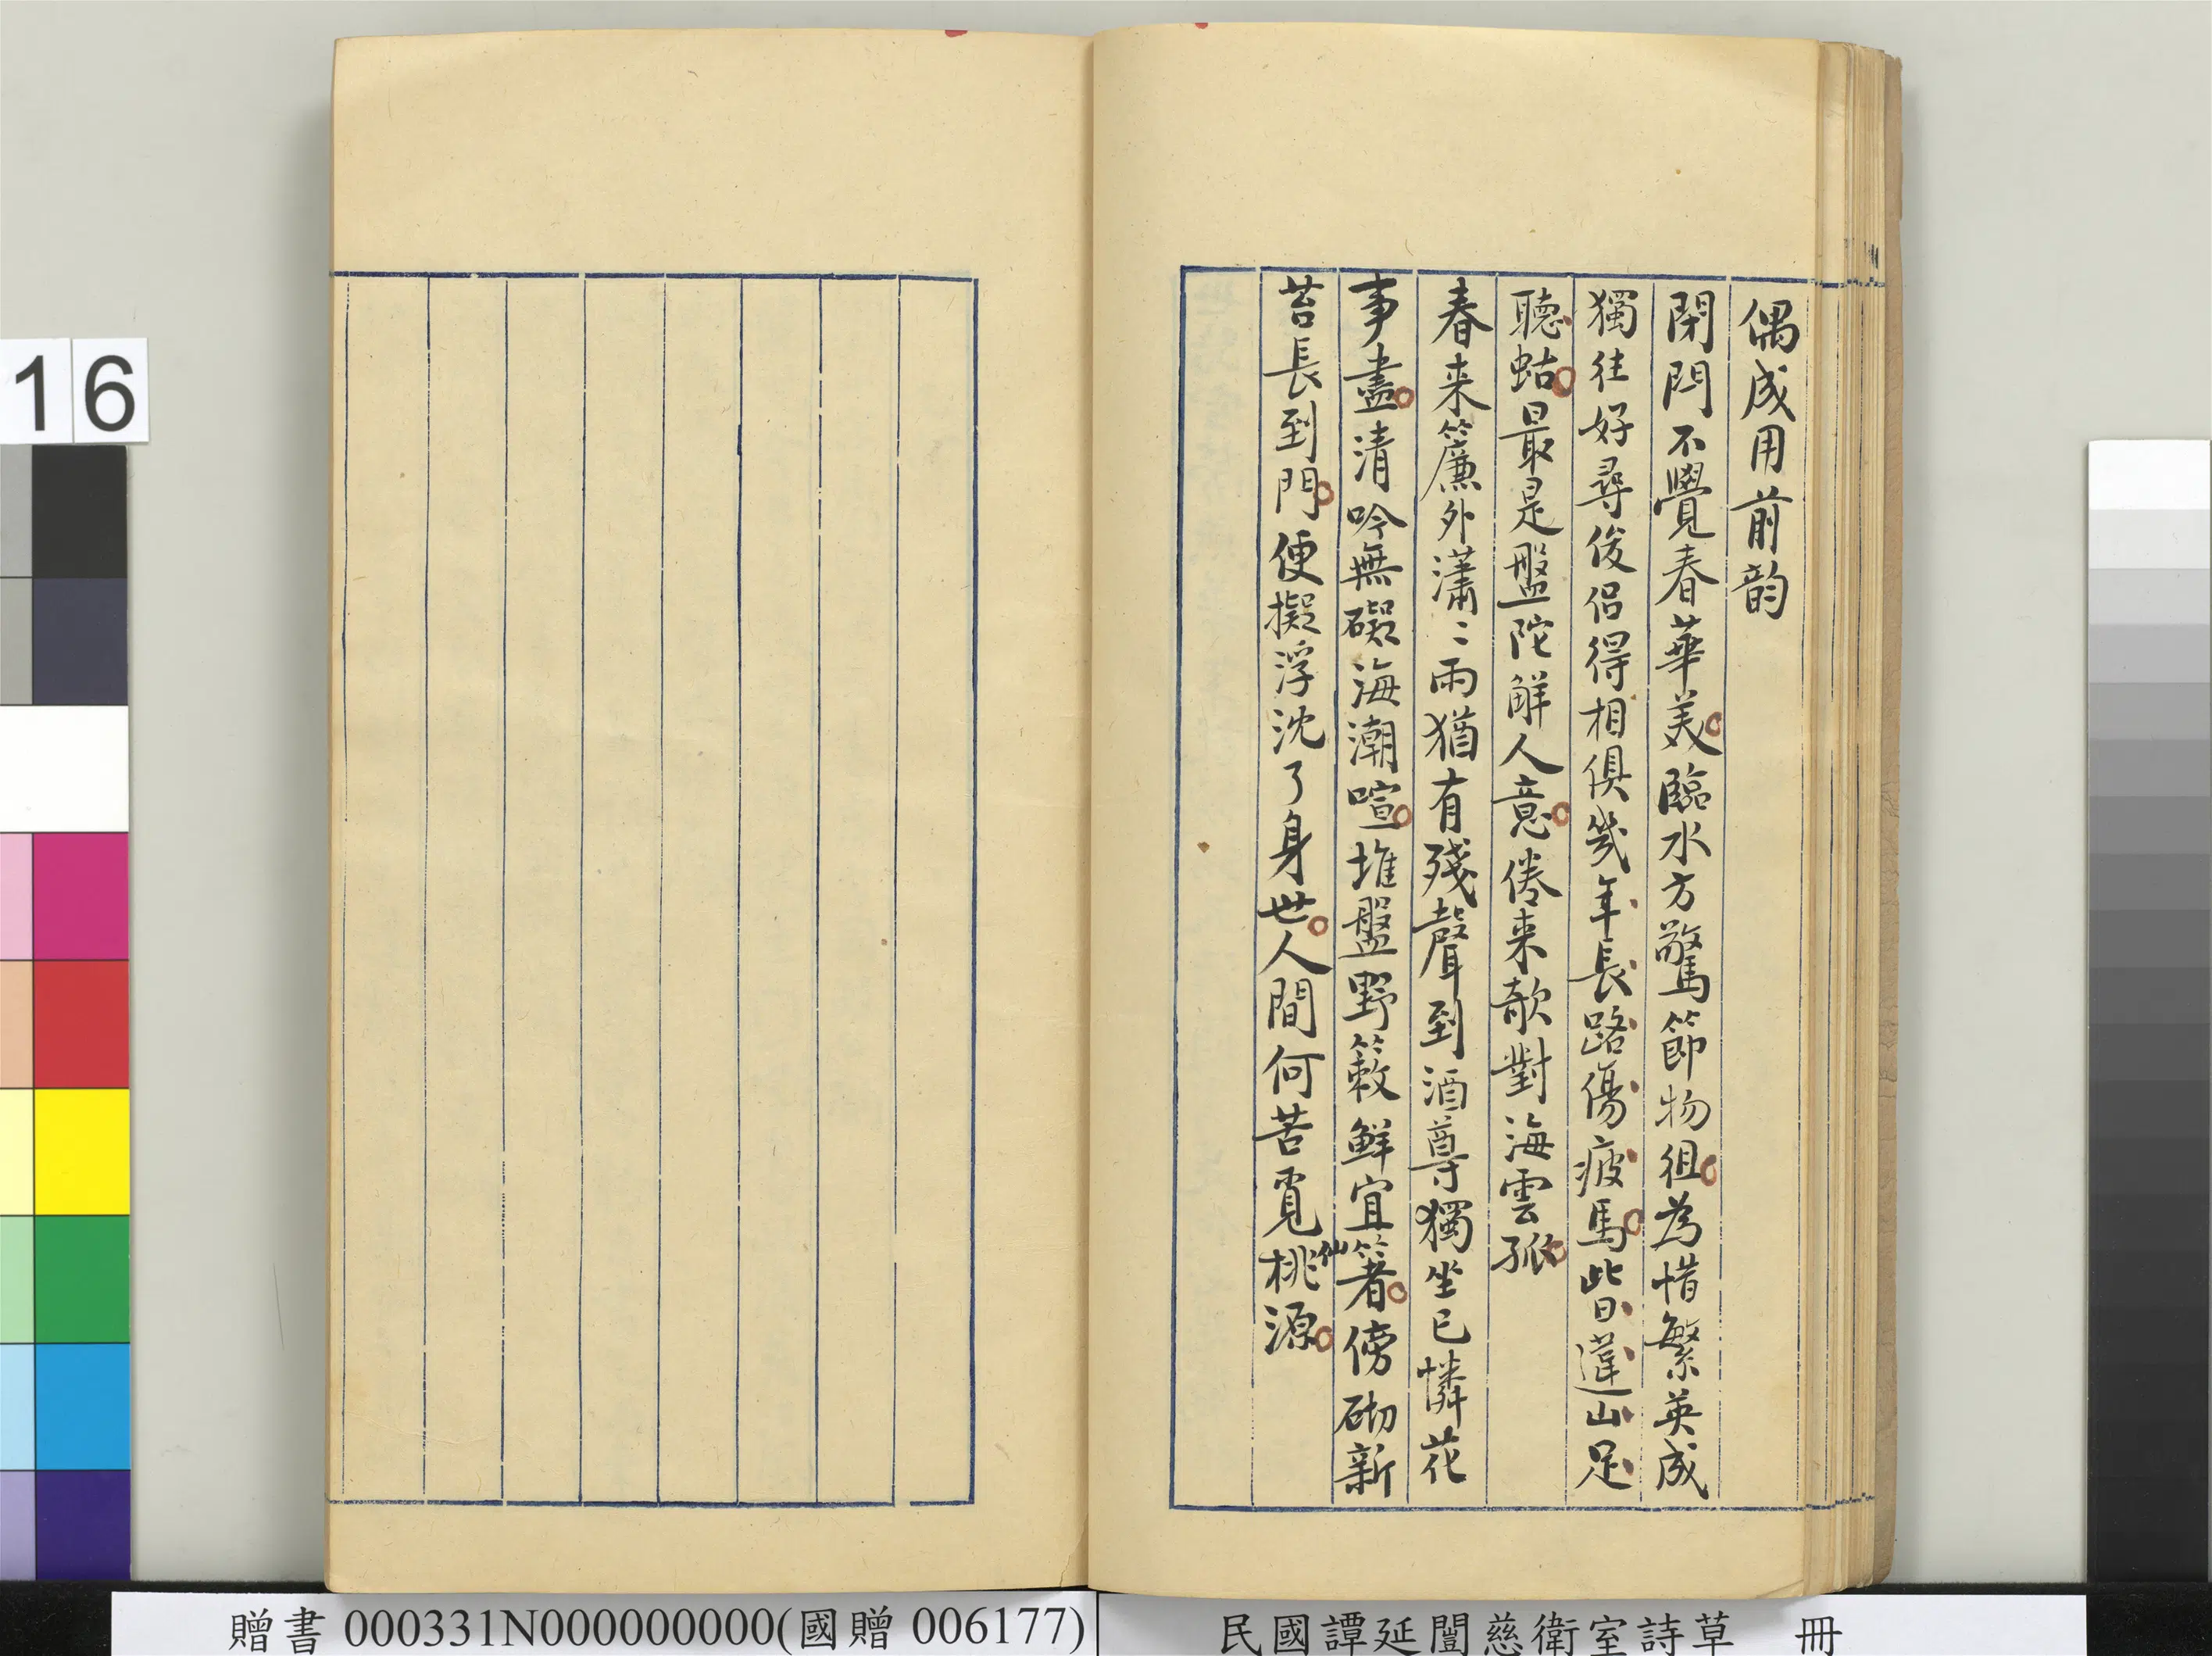 偶成用前韵
閉門不覺春華美臨水方驚節物徂為惜繁英成
獨往好尋俊侶得相俱幾年長路傷疲馬此日違山足
聽蛄最是盤陀解人意倦来欹對海雲孤
春来簾外瀟〻雨猶有殘聲到酒尊獨坐已憐花
事盡清吟無礙海潮喧堆盤野蔌鮮宜箸傍砌新
苔長到門便擬浮沈了身世人間何苦覓桃源
仙
16
贈書 000331N000000000(國贈 006177)
民國譚延闓慈衛室詩草 冊